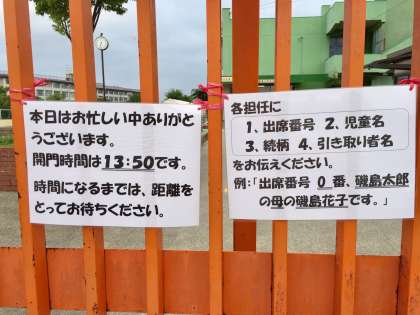 本日はお忙しい中ありがと
うございます。
開門時間は13:50です。
時間になるまでは、距離を
とってお待ちください。
各担任に
1、出席番号 2、児童名
3、続柄 4、引き取り者名
をお伝えください。
例:「出席番号 0 番、磯島太郎
の母の磯島花子です。」